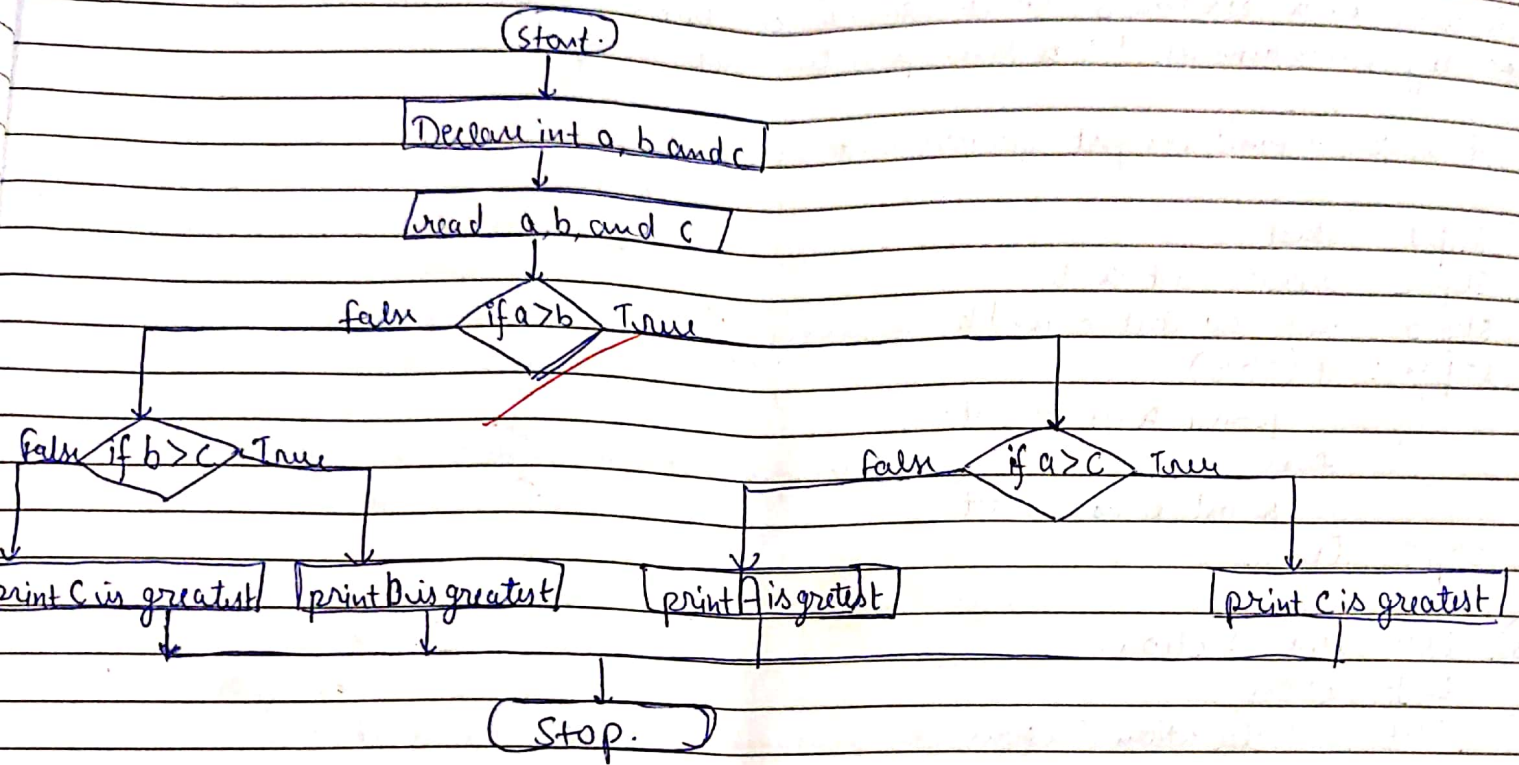 Start.
Declare int a, b and c
read a, b, and c
false if a>b True
false if b>c True
false if a>c True
print C is greatest print B is greatest print A is gretest print C is greatest
Stop.